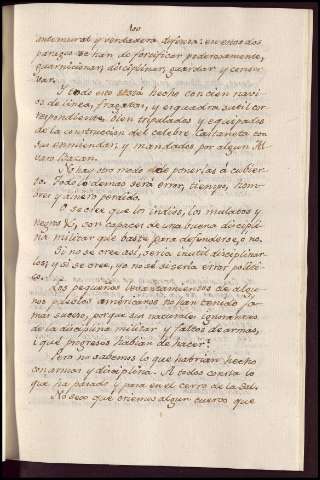 antemural y verdadera defensa: en estos dos
parages se han de fortificar poderosamente,
guarnicionar, disciplinar, guardar y conser
var.
Y todo esto estará hecho con cien navi
os de linea, fragatas, y esquadra sutil cor
respondiente, bien tripulados y equipados
de la construccion del celebre Castañeta con
sus enmiendas; y mandados por algun Al
varo Bazan.
No hay otro modo de ponerlas á cubier
to. Todo lo demas será error, tiempo, hom
bres y dinero perdido.
O se cree que los indios, los mulatos y
negros &c, son capaces de una buena discipli
na militar que baste para defenderse, ó no.
Si no se cree asi, seria inutil disciplinar
los; y si se cree, yo no sé si seria error politi
co.
Los pequeños levantamientos de algu
nos pueblos americanos no han tenido ja
mas suceso, porque sus nacionales ignorantes
de la disciplina militar y faltos de armas,
¿qué progresos habian de hacer?
Pero no sabemos lo que habrian hecho
con armas y disciplina. A todos consta lo
que ha pasado y pasa en el cerro de la Sal.
No seco que oriemos algun cuervo que